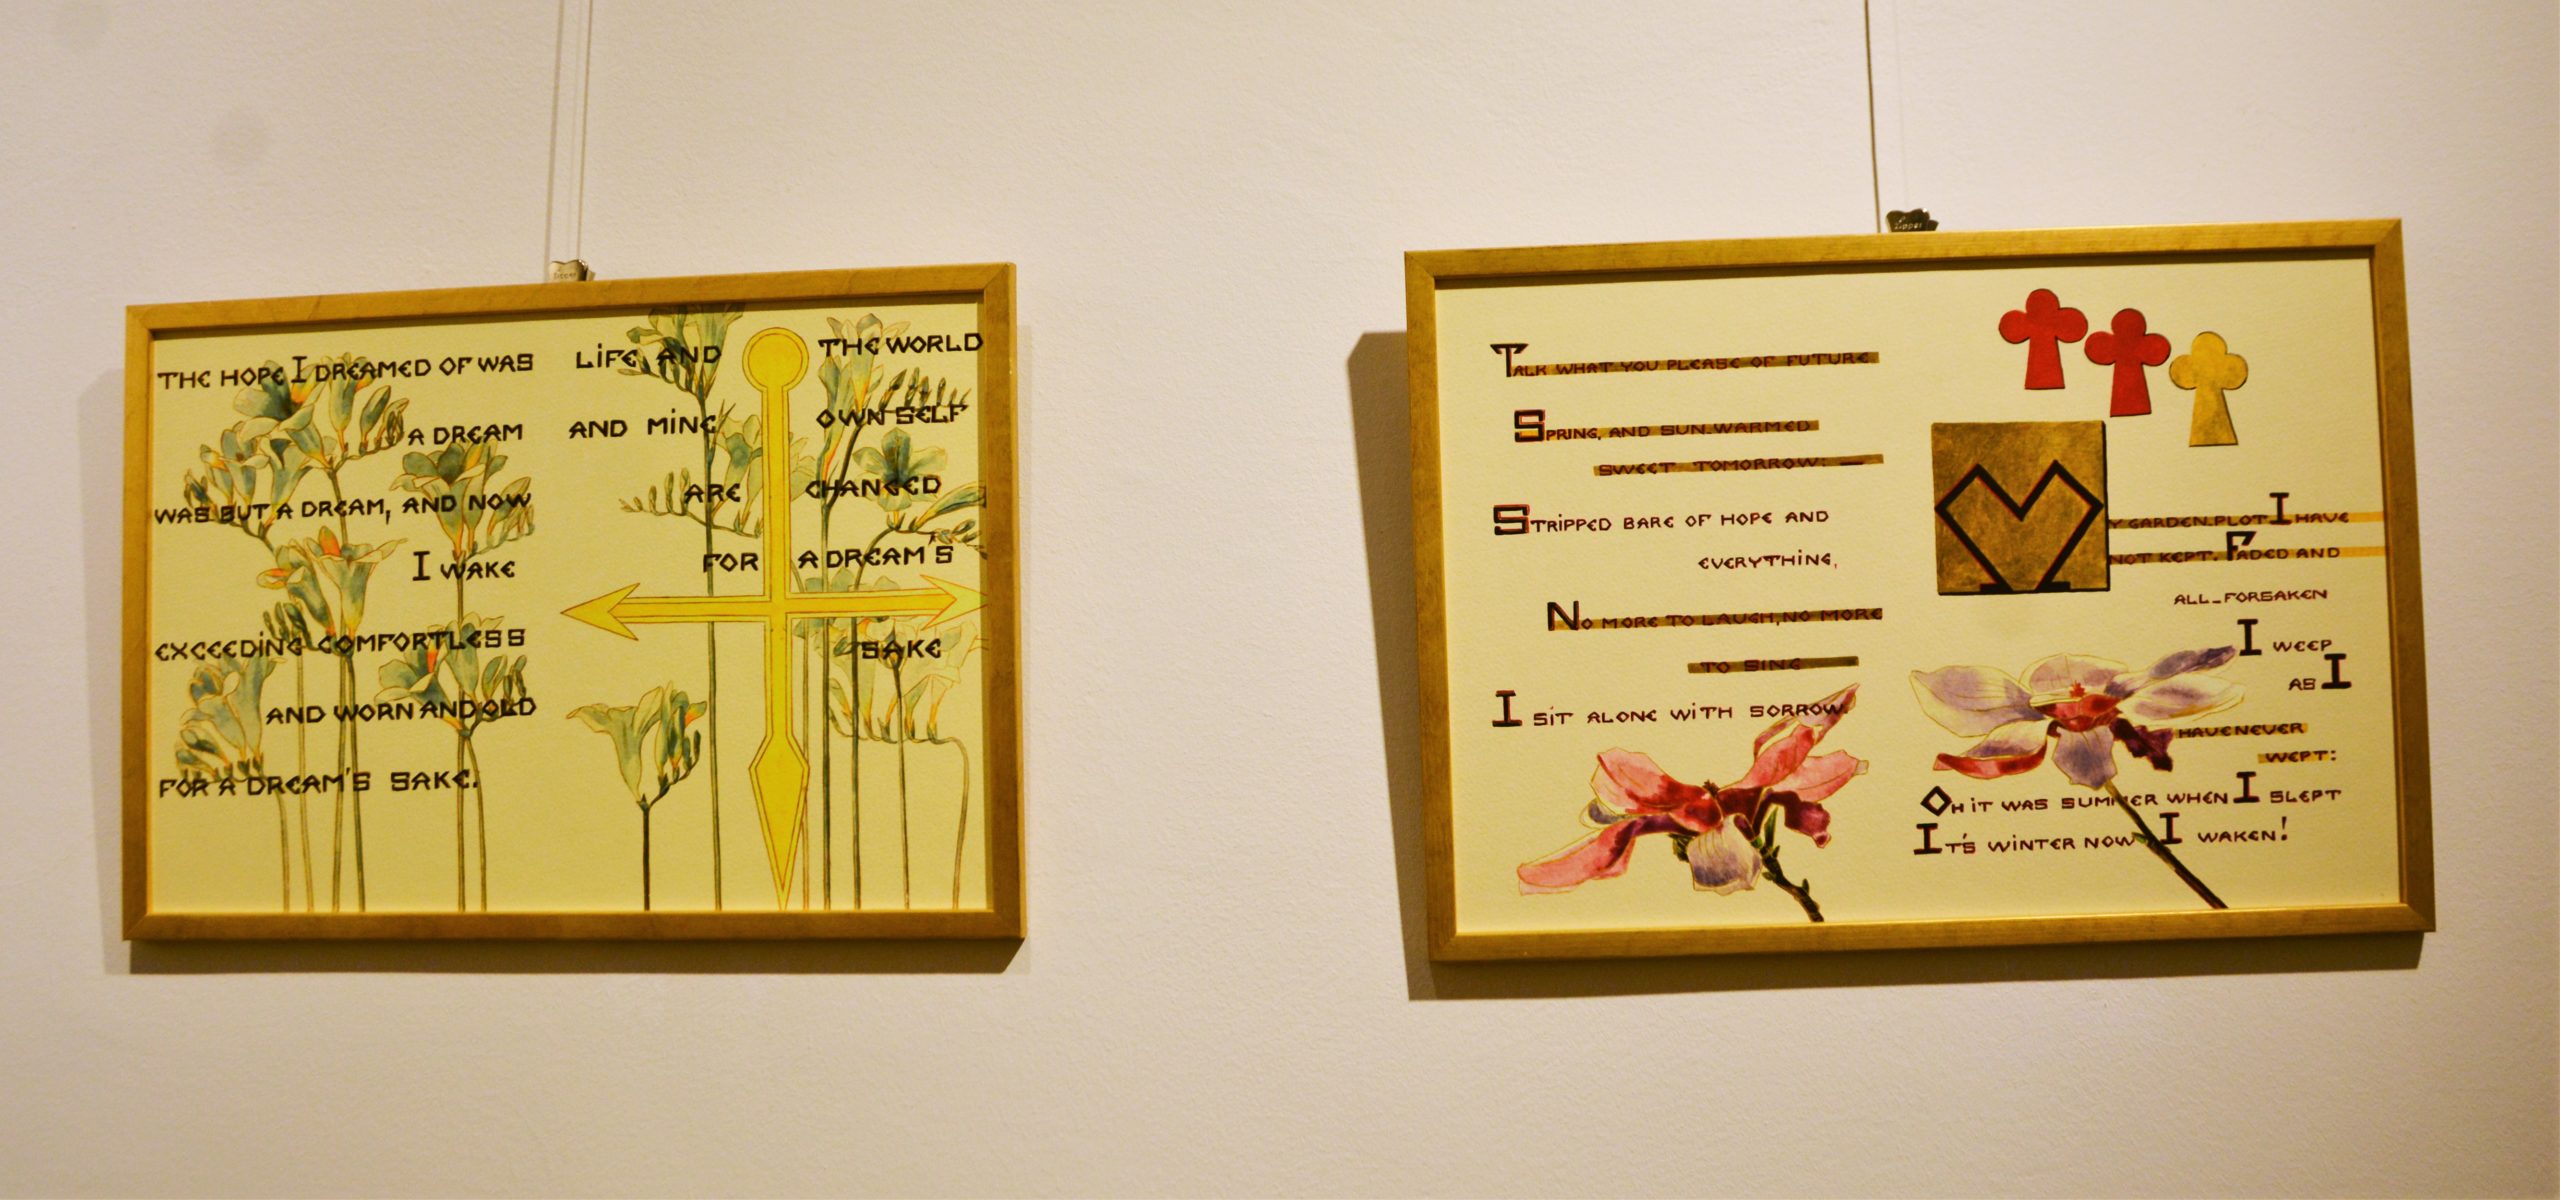 Zipper
THE HOPE I DREAMED OF WAS
A DREAM
WAS BUT A DREAM, AND NOW
I WAKE
EXCEEDING COMFORTLESS
AND WORN AND OLD
FOR A DREAM'S SAKE.
LIFE AND THE WORLD
AND MINE OWN SELF
ARE CHANGED
FOR A DREAM'S
SAKE
Zipper
TALK WHAT YOU PLEASE OF FUTURE
SPRING, AND SUN-WARMED
SWEET TOMORROW: —
STRIPPED BARE OF HOPE AND
EVERYTHING,
NO MORE TO LAUGH, NO MORE
TO SING
I SIT ALONE WITH SORROW.
MY GARDEN-PLOT I HAVE
NOT KEPT. FADED AND
ALL-FORSAKEN
I WEEP
AS I
HAVE NEVER
WEPT:
OH IT WAS SUMMER WHEN I SLEPT
IT'S WINTER NOW I WAKEN!